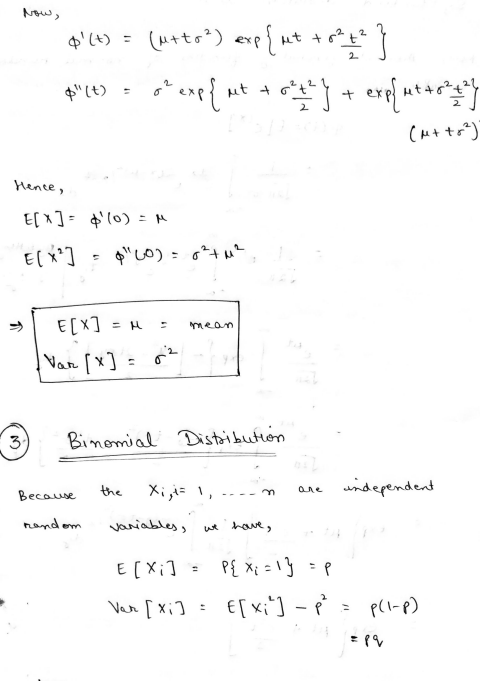 Now,
φ'(t) = (μ+tσ²) exp{ μt + σ²t²/2 }
φ''(t) = σ² exp{ μt + σ²t²/2 } + exp{ μt+σ²t²/2 }
(μ+tσ²)
Hence,
E[X] = φ'(0) = μ
E[X²] = φ''(0) = σ²+μ²
⇒ E[X] = μ = mean
Var[X] = σ²
③ Binomial Distribution
Because the Xᵢ, i= 1, ..... n are independent
random variables, we have,
E[Xᵢ] = P{Xᵢ=1} = p
Var[Xᵢ] = E[Xᵢ²] - p² = p(1-p)
= pq